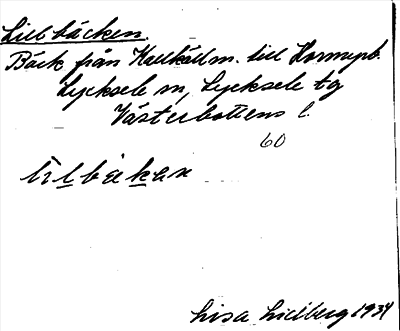 Lillbäcken.
Bäck från Kallkällm. till Hornmyrb.
Lycksele sn, Lycksele tg
Västerbottens l.
60
Lisa Lidberg 1934